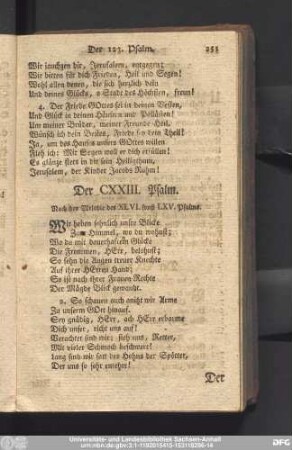 Der 123. Psalm. 253
Wir jauchzen dir, Jerusalem, entgegen:
Wir bitten für dich Frieden, Heil und Segen!
Wohl allen denen, die sich herzlich dein
Und deines Glücks, o Stadt des Höchsten, freun!
4. Der Friede GOttes sei in deinen Vesten,
Und Glück in deinen Häusern und Pallästen!
Um meiner Brüder, meiner Freunde Heil,
Wünsch ich dein Bestes, Friede sey dein Theil!
Ja, um des Hauses unsers GOttes willen
Fleh ich: Mit Segen woll er dich erfüllen!
Es glänze stets in dir sein Heiligthum,
Jerusalem, der Kinder Jacobs Ruhm!
Der CXXIII. Psalm.
Nach der Melodie des XLVI. und LXV. Psalms.
Wir heben sehnlich unsre Blicke
Zum Himmel, wo du wohnst;
Wo du mit dauerhaftem Glücke
Die Frommen, HErr, belohnst;
So sehn die Augen treuer Knechte
Auf ihrer HErren Hand;
So ist nach ihrer Frauen Rechte
Der Mägde Blick gewandt.
2. So schauen auch anitzt wir Arme
Zu unserm GOtt hinauf.
Sey gnädig, HErr, ach HErr erbarme
Dich unser, richt uns auf!
Verachtet sind wir; sieh uns, Retter,
Mit vieler Schmach beschwert!
Lang sind wir satt des Hohns der Spötter,
Der uns so sehr entehrt!
Der
Universitäts- und Landesbibliothek Sachsen-Anhalt
DFG